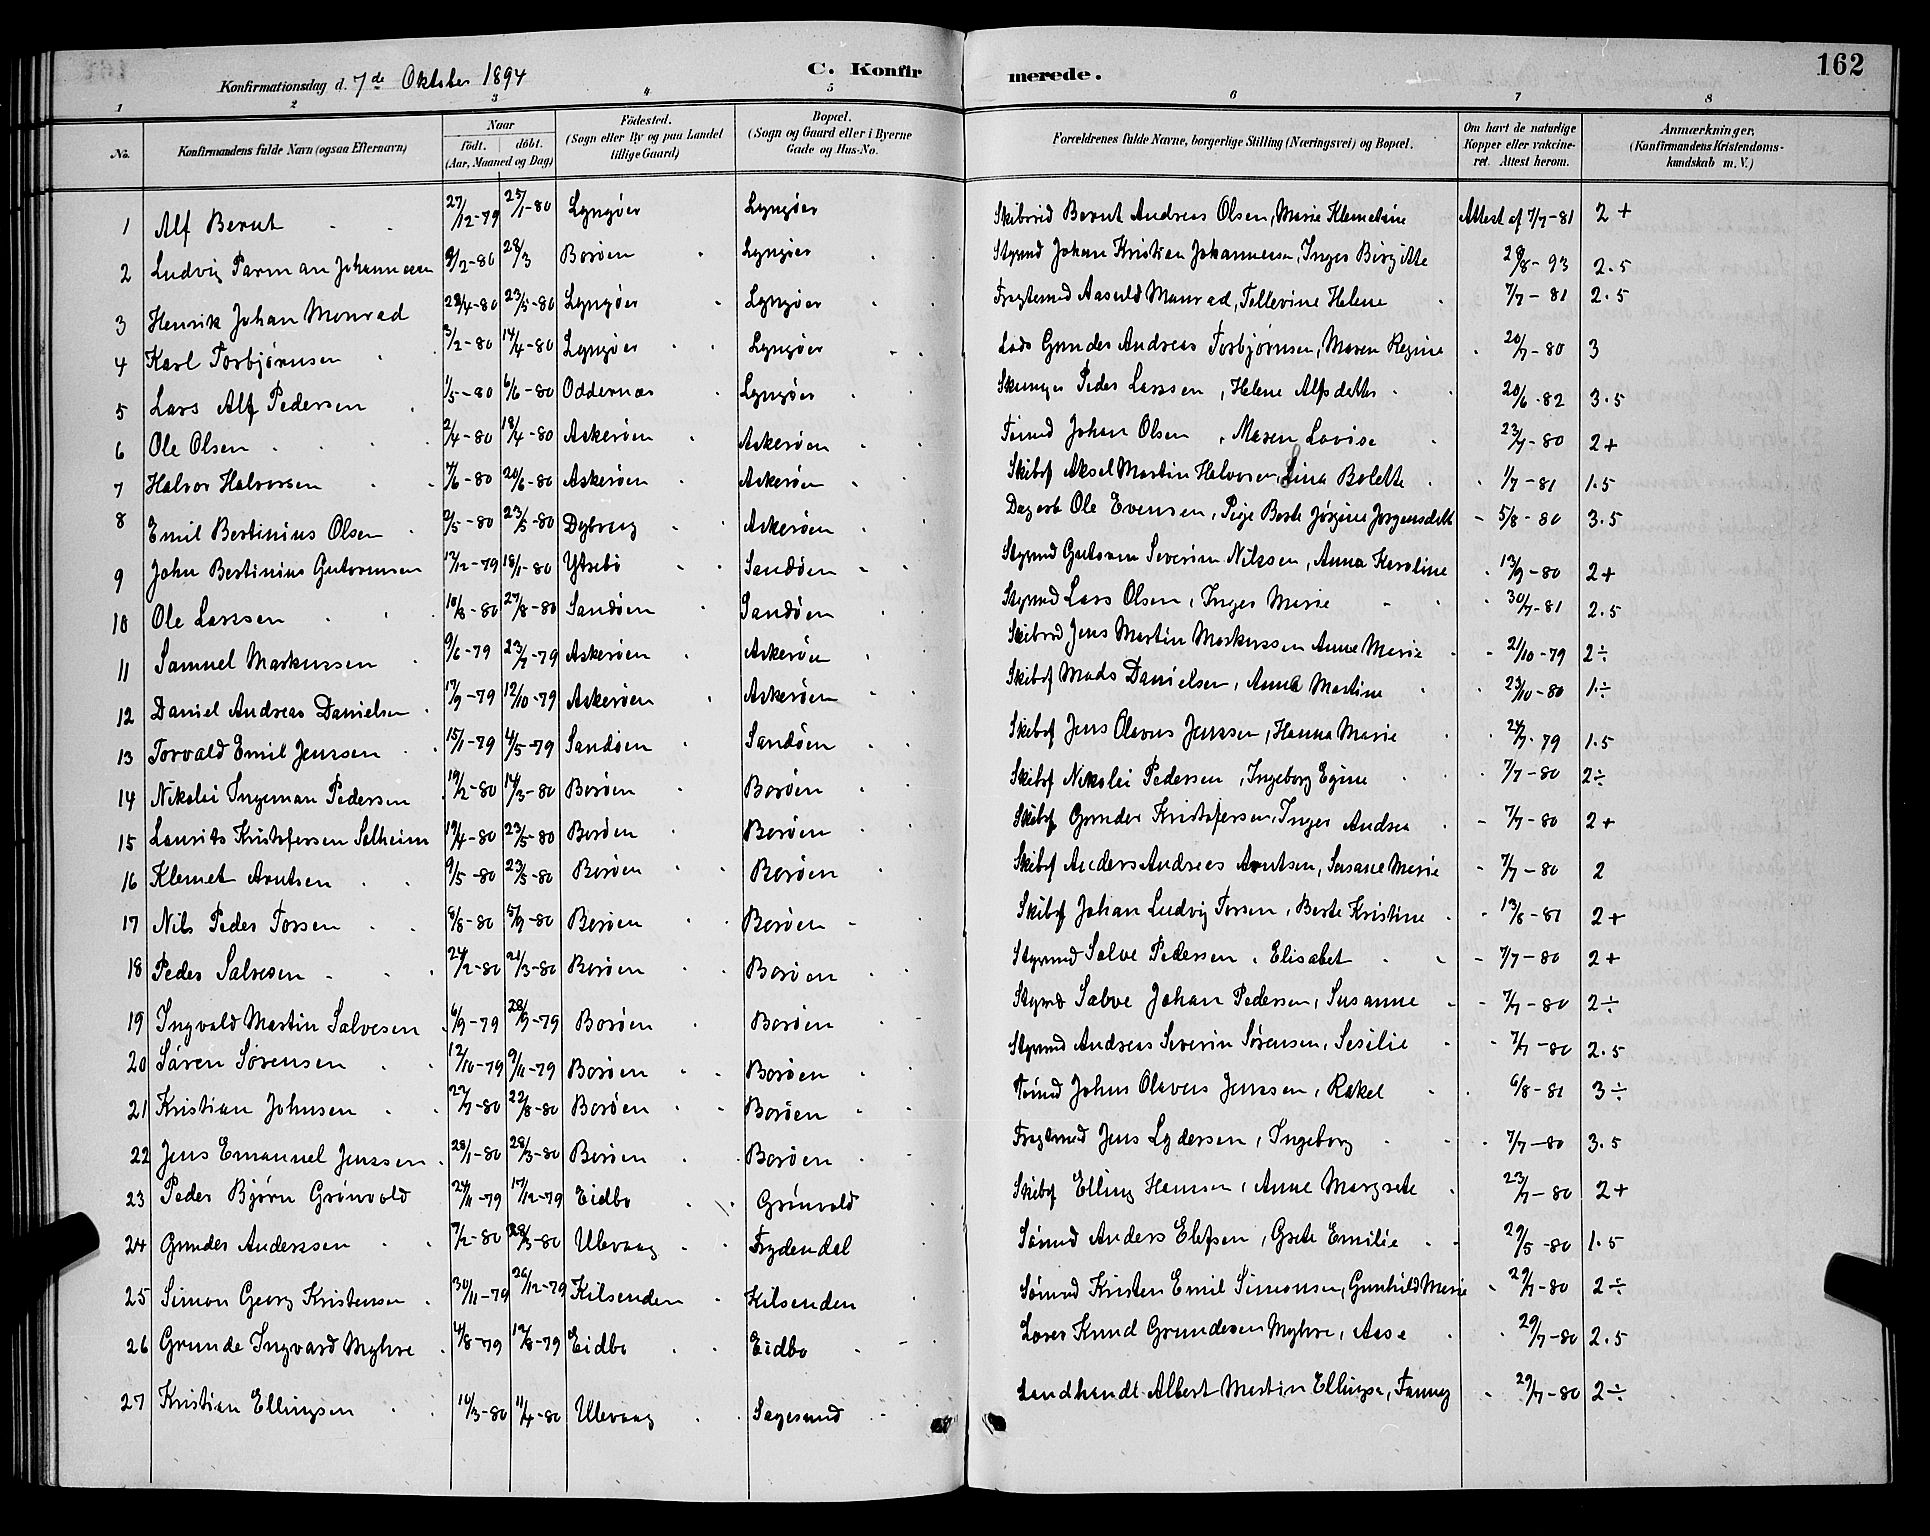 Konfirmationsdag d. 7de Oktober 1894 C. Konfirmerede. 162
1 2 3 4 5 6 7 8
No. Konfirmandens fulde Navn (ogsaa Efternavn) Naar födt. döbt. (Aar, Maaned og Dag) Födested. (Sogn eller By og paa Landet tillige Gaard) Bopæl. (Sogn og Gaard eller i Byerne Gade og Hus-No. Forældrenes fulde Navne, borgerlige Stilling (Næringsvei) og Bopæl. Om havt de naturlige Kopper eller vakcineret. Attest herom. Anmærkninger. (Konfirmandens Kristendomskundskab m. V.)
1 Alf Bernt 27/12-79 25/1-80 Lyngöer Lyngöer Bernt Andreas Olsen, Marie Klemetsine Attest af 7/7-81 2+
2 Ludvig Parman Johannesen /2-80 28/3 Boröen Lyngöer Styrmd Johan Kristian Johannesen, Inger Birgitte 28/8-93 2.5
3 Henrik Johan Monrad 22/4-80 23/5-80 Lyngöer Lyngöer Fragtemd Aasuld Monrad, Tellevine Helene 7/7-81 2.5
4 Karl Torbjörnsen 3/2-80 14/4-80 Lyngöer Lyngöer Lods Gunder Andreas Torbjörnsen, Maren Regine 20/7-80 3
5 Lars Alf Pedersen 1/5-80 6/6-80 Oddernæs Lyngöer Peder Larssen, Helene Alfsdatter 20/6-82 3.5
6 Ole Olsen 2/4-80 18/4-80 Askeröen Askeröen Tömd Johan Olsen, Maren Lovise 23/7-80 2+
7 Halvor Halvorsen 7/6-80 20/6-80 Askeröen Askeröen Skibsf Aksel Martin Halvorsen, Lina Bolette 1/7-81 1.5
8 Emil Bertinius Olsen /5-80 23/5-80 Dybvag Askeröen Dagarb Ole Evensen, Pige Berte Jörgine Jörgensdatt 5/8-80 3.5
9 John Bertinius Gutormsen 17/12-79 18/1-80 Ytrebö Sandöen Styrmd Gutorm Severin Nilssen, Anna Karoline 13/9-80 2+
10 Ole Larssen 10/8-80 27/8-80 Sandöen Sandöen Styrmd Lars Olsen, Inger Marie 30/7-81 2.5
11 Samuel Markussen 9/6-79 23/7-79 Askeröen Askeröen Jens Martin Markussen Anne Marie 21/10-79 2÷
12 Daniel Andreas Danielsen 17/9-79 12/10-79 Askeröen Askeröen Skibsf Mads Danielsen, Anna Martine 23/10-80 1÷
13 Torvald Emil Jenssen 15/1-79 4/5-79 Sandöen Sandöen Skibsf Jens Olavus Jenssen, Hanna Marie 24/7-79 1.5
14 Nikolai Ingeman Pedersen 19/2-80 14/3-80 Boröen Boröen Skibsf Nikolai Pedersen, Ingeborg Egine 7/7-80 2÷
15 Laurits Kristofersen Solheim 19/4-80 23/5-80 Boröen Boröen Skibsf Gunder Kristofersen, Inger Andrea 7/7-80 2+
16 Klemet Arntsen 9/5-80 23/5-80 Boröen Boröen Skibsf Anders Andreas Arntsen, Susane Marie 7/7-80 2
17 Nils Peder Torsen 8/8-80 5/9-80 Boröen Boröen Skibsf Johan Ludvig Torsen, Berte Kristine 13/8-81 2+
18 Peder Salvesen 24/2-80 21/3-80 Boröen Boröen Styrmd Salve Pedersen, Elisabet 7/7-80 2+
19 Ingvald Martin Salvesen 6/9-79 28/9-79 Boröen Boröen Styrmd Salve Johan Pedersen, Susanne 7/7-80 2÷
20 Sören Sörensen 12/10-79 9/11-79 Boröen Boröen Styrmd Andreas Severin Sörensen, Sesilie 7/7-80 2.5
21 Kristian Johnsen 27/7-80 22/8-80 Boröen Boröen Tömd John Olavus Jenssen, Rakel 6/8-81 3÷
22 Jens Emanuel Jenssen 28/1-80 28/3-80 Boröen Boröen Fragtemd Jens Lydersen, Ingeborg 7/7-80 3.5
23 Peder Björn Grönvold 24/11-79 17/12-79 Eidbo Grönvold Skibsf Elling Hansen, Anne Margrete 23/7-80 2+
24 Gunder Anderssen 7/2-80 28/3-80 Ulevaag Frydendal Sömd Anders Elefsen, Grete Emilie 29/5-80 1.5
25 Simon Georg Kristensen 30/11-79 26/12-79 Kilsenden Kilsenden Sömd Kristen Emil Simonsen, Gunhild Marie 29/7-80 2÷
26 Grunde Ingvard Myhre 4/8-79 17/8-79 Eidbo Eidbo Knud Grundesen Myhre, Aase 29/7-80 2.5
27 Kristian Ellingsen 10/3-80 11/4-80 Ulevaag Sagesund Landhandl. Albert Martin Ellingsen, Fanny 29/7-80 2÷